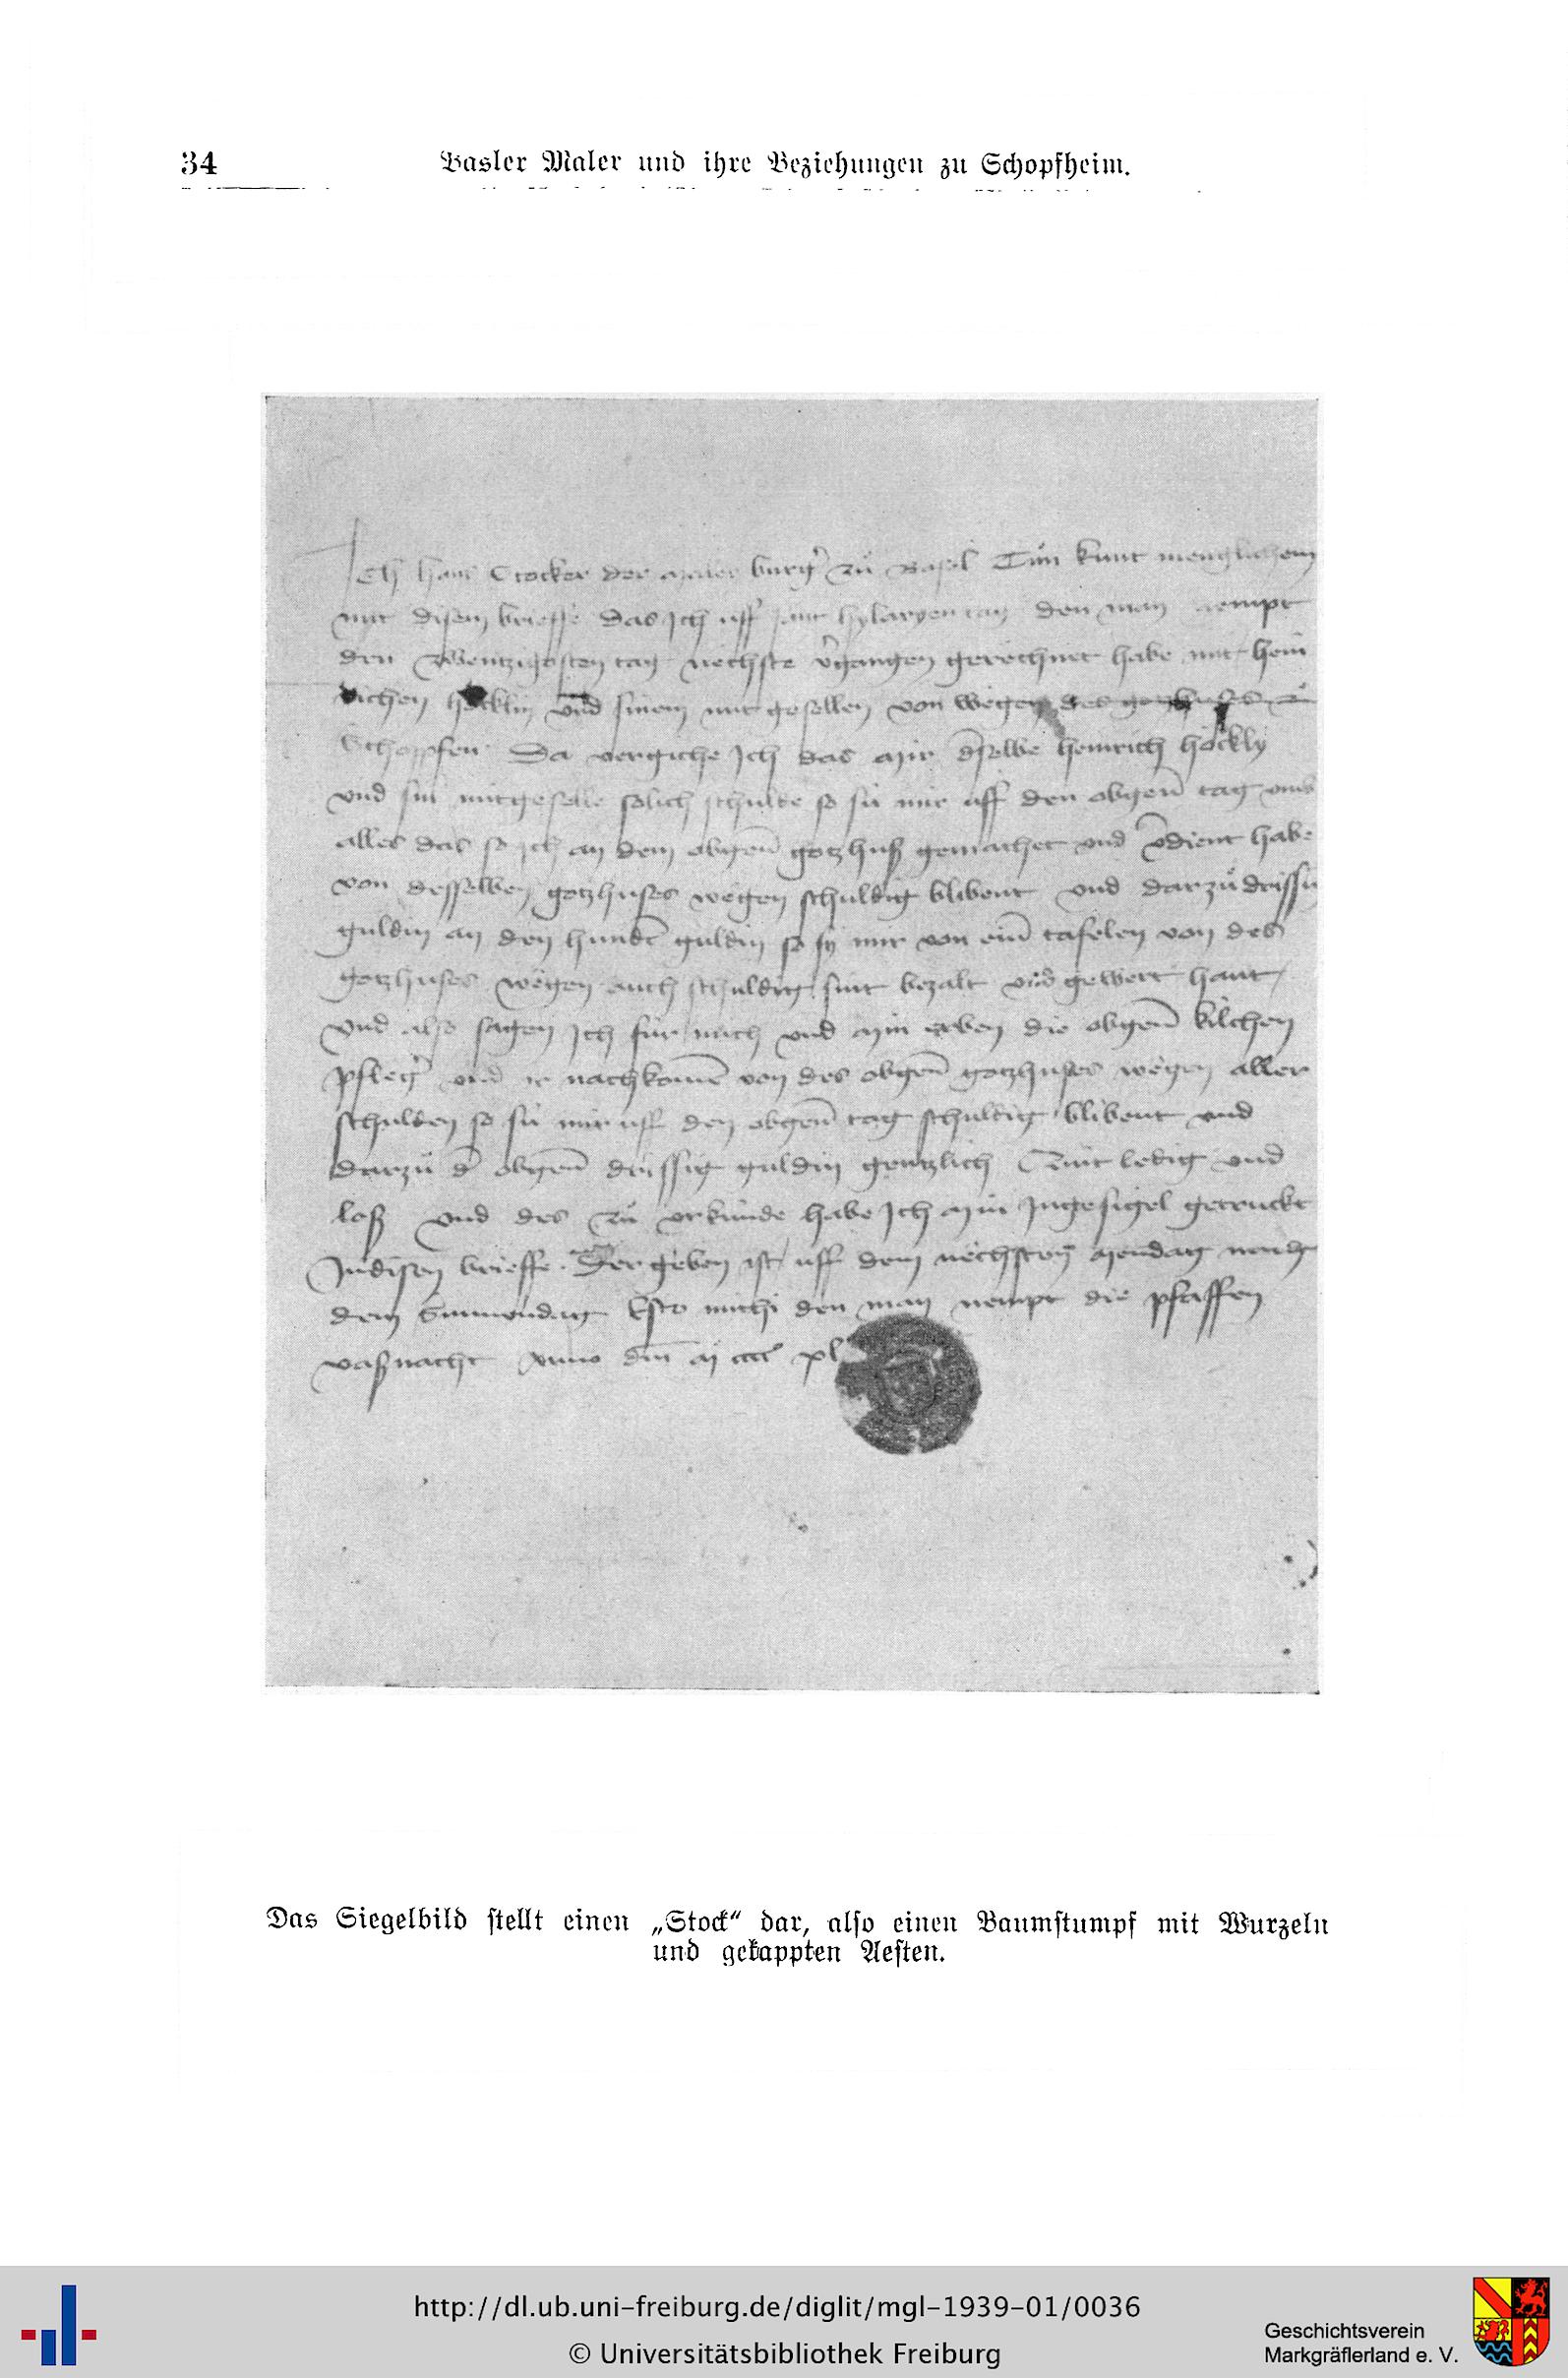 34 Basler Maler und ihre Beziehungen zu Schopfheim.
Ich hans Stocker der maler burgr̄ zů Basel Tůn kunt menglichem
mit disem brieffe das Ich uff sant hylaryen tag den man nempt
den zwentzigosten tag nechste v̄gangen gerechnet habe mit hein
richen höcklin und sinem mit gesellen von wegen des gotzhuses zů
Schopfen Da vergiche Ich das mir d̄selbe heinrich höckly
und sin mitgeselle solich schulde so sü mir uff den obgen̄ tag umb
alles das so ich an dem obgen̄ gotzhuß gemachet und v̄dient habe
von desselben gotzhuses wegen schuldig blibent und darzů drissig
guldin an den hundt̄ guldin so sy mir von ein̄ tafelen von des
gotzhuses wegen auch schuldig sint bezalt und gewert hant
Und also sagen Ich für mich und min erben die obgen̄ kilchen
pflegr̄ und ir nachkomē von des obgen̄ gotzhuses wegen aller
schulden so sü mir uff den obgen̄ tag schuldig blibent und
darzů d̄ obgen̄ drissig guldin gentzlich Quit ledig und
loß Und des zů urkünde habe Ich min Ingesigel getruckt
In disen brieffe Der geben ist uff dem nechsten mendag nach
dem Sunnendag Esto michi den man nempt die pfaffen
vaßnacht Anno dm̄ m cccc xl
Das Siegelbild stellt einen „Stock“ dar, also einen Baumstumpf mit Wurzeln
und gekappten Aesten.
http://dl.ub.uni-freiburg.de/diglit/mgl-1939-01/0036
© Universitätsbibliothek Freiburg
Geschichtsverein
Markgräflerland e. V.